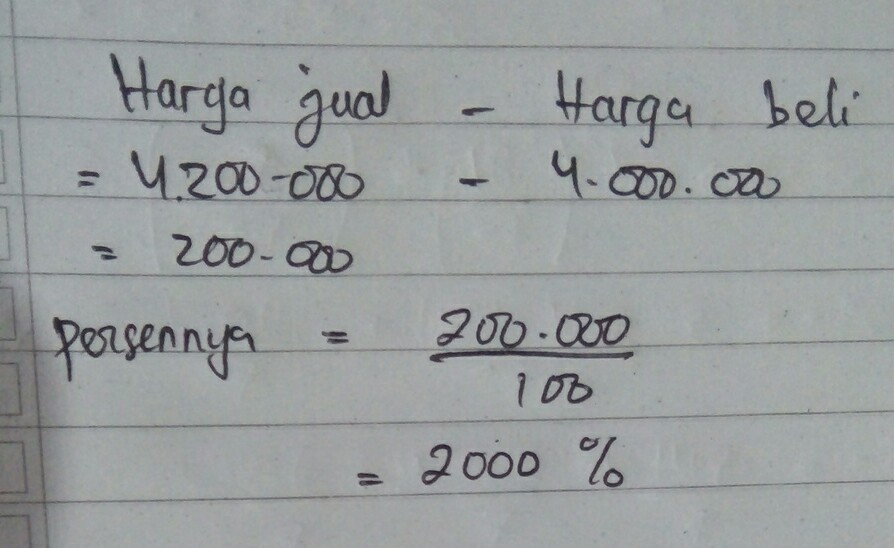 Harga jual - Harga beli
= 4.200-000 - 4.000.000
= 200-000
persennya = 200.000
100
= 2000 %